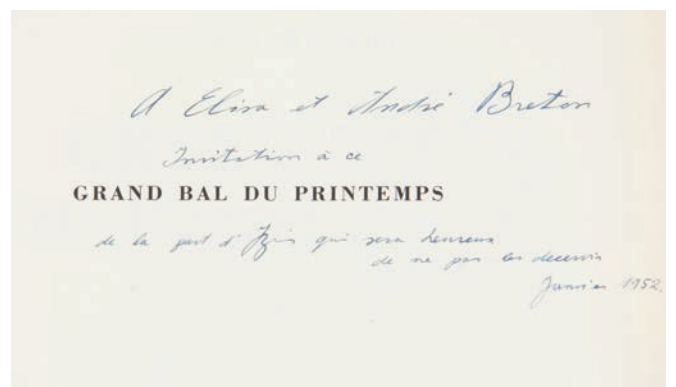 A Elisa et André Breton
Invitation à ce
GRAND BAL DU PRINTEMPS
de la part d'Izis qui sera heureux
de ne pas les decevoir
Janvier 1952.